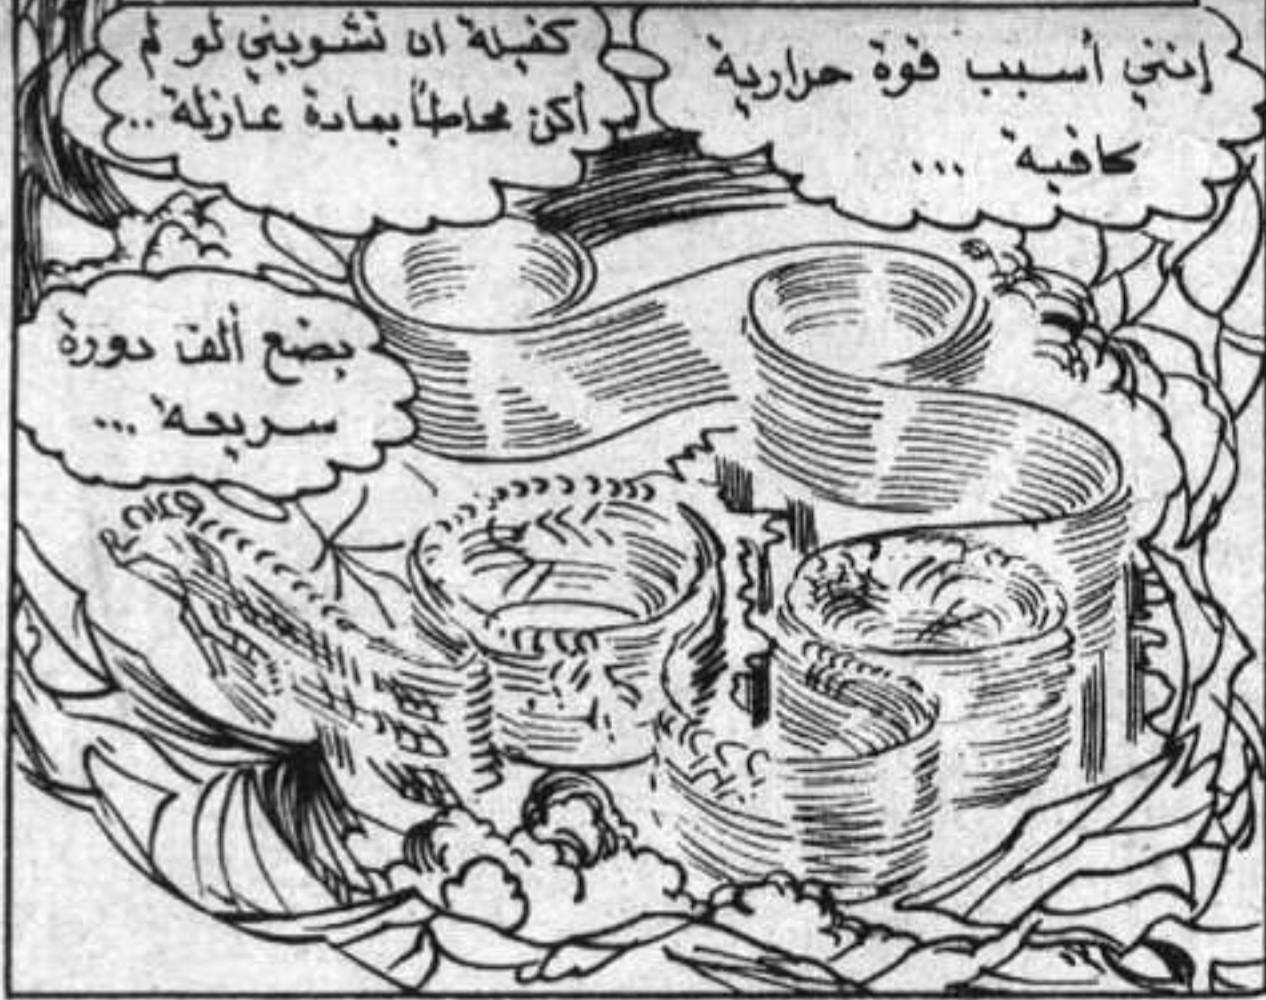 إنني أسبب قوة حرارية
كافية ...
كفيلة ان تشويني لو لم
أكن محاطاً بمادة عازلة ..
بضع ألف دورة
سريعة ...